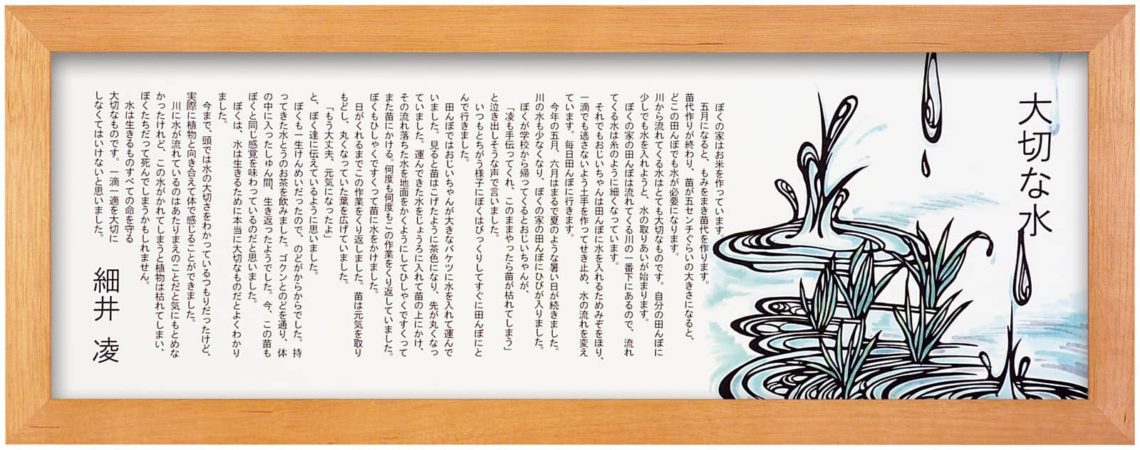 大切な水
ぼくの家はお米を作っています。
五月になると、もみをまき苗代を作ります。
苗代作りが終わり、苗が五センチぐらいの大きさになると、
どこの田んぼでも水が必要になります。
川から流れてくる水はとても大切なものです。自分の田んぼに
少しでも水を入れようと、水の取りあいが始まります。
ぼくの家の田んぼは流れてくる川の一番下にあるので、流れ
てくる水は糸のように細くなっています。
それでもおじいちゃんは田んぼに水を入れるためみぞをほり、
一滴でも逃さないよう土手を作ってせき止め、水の流れを変え
ています。毎日田んぼに行きます。
今年の五月、六月はまるで夏のような暑い日が続きました。
川の水も少なくなり、ぼくの家の田んぼにひびが入りました。
ぼくが学校から帰ってくるとおじいちゃんが、
「凌も手伝ってくれ、このままやったら苗が枯れてしまう」
と泣き出しそうな声で言いました。
いつもとちがう様子にぼくはびっくりしてすぐに田んぼにと
んで行きました。
田んぼではおじいちゃんが大きなバケツに水を入れて運んで
いました。見ると苗はこげたように茶色になり、先が丸くなっ
ていました。運んできた水をじょうろに入れて苗の上にかけ、
その流れ落ちた水を地面をかくようにしてひしゃくですくって
また苗にかける。何度も何度もこの作業をくり返していました。
ぼくもひしゃくですくって苗に水をかけました。
日がくれるまでこの作業をくり返しました。苗は元気を取り
もどし、丸くなっていた葉を広げていました。
「もう大丈夫、元気になったよ」
と、ぼく達に伝えているように思いました。
ぼくも一生けんめいだったので、のどがからからでした。持
ってきた水とうのお茶を飲みました。ゴクンとのどを通り、体
の中に入ったしゅん間、生き返ったようでした。今、この苗も
ぼくと同じ感覚を味わっているのだと思いました。
ぼくは、水は生きるために本当に大切なものだとよくわかり
ました。
今まで、頭では水の大切さをわかっているつもりだったけど、
実際に植物と向き合えて体で感じることができました。
川に水が流れているのはあたりまえのことだと気にもとめな
かったけれど、この水がかれてしまうと植物は枯れてしまい、
ぼくたちだって死んでしまうかもしれません。
水は生きるものすべての命を守る
大切なものです。一滴一滴を大切に
しなくてはいけないと思いました。
細井 凌